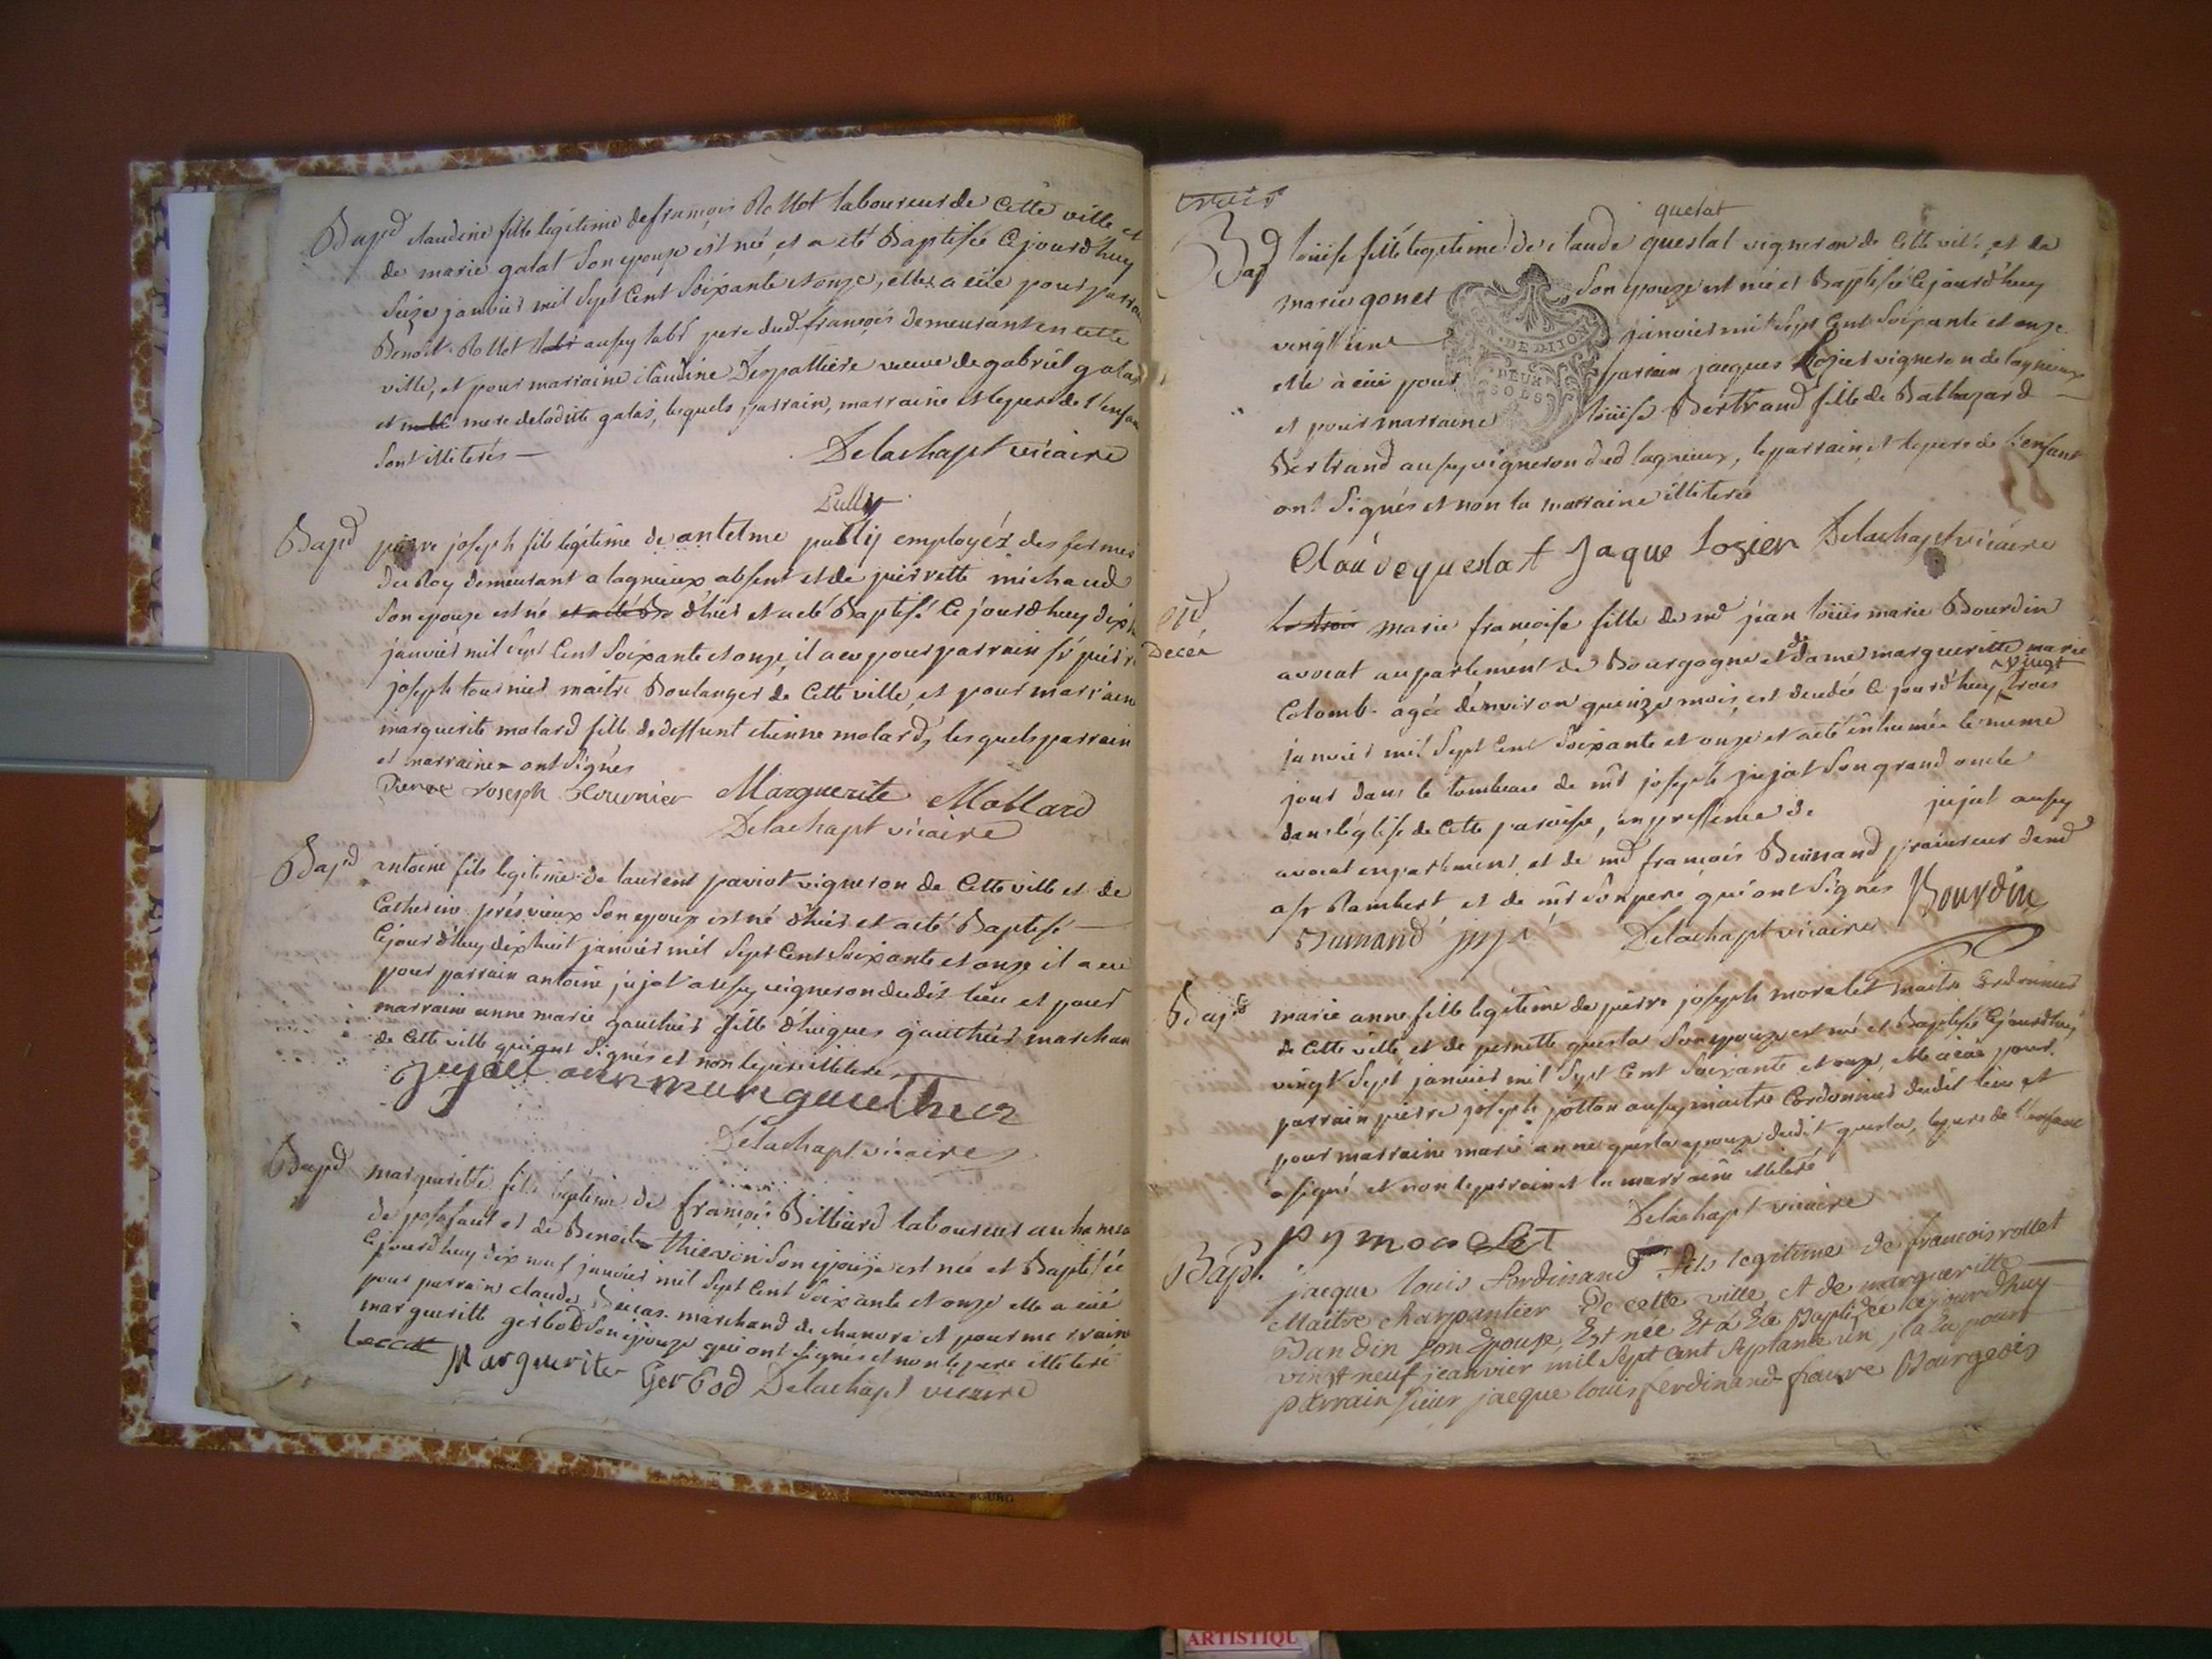 Bapd claudine fille legitime de françois Rollet laboureur de Cette ville et
de marie galat Son epouse est née, et a eté Baptisée Ce jourd'huy
Seize janvier mil Sept Cent Soixante et onze, elle a eüe pour parrain
Benoit Rollet aussy labr pere dud françois demeurant en cette
ville, et pour marraine claudine Despallière veuve de gabriel galat
et mere de ladite galat, lesquels parrain, marraine et le pere de l'enfant
Sont illiterés —
Delachapt vicaire
Pully
Bapd pierre joseph fils légitime de antelme pully employéz des fermes
du Roy demeurant a lagnieux absent et de pierrette michaud
Son epouse est né et a eté Ba d'hier et a eté Baptisé Ce jourd'huy dix
janvier mil Sept Cent Soixante et onze, il a eu pour parrain Sr pierre
joseph tournier maitre Boulanger de Cette ville, et pour marraine
marguerite molard fille de deffunt etienne molard, les quels parrain
et marraine ont Signés
Pierre Joseph Tournier Marguerite Mollard
Delachapt vicaire
Bapd antoine fils legitime de laurent paviot vigneron de Cette ville et de
Catherine présvieux Son epouse est né d'hier et a eté Baptisé —
Ce jourd'huy dix huit janvier mil Sept Cent Soixante et onze il a eu
pour parrain antoine jujat aussy vigneron dudit lieu et pour
marraine anne marie gauthier fille d'hugues gauthier marchan
de Cette ville qui ont Signés et non le pere illiteré
jujat gauthier
Delachapt vicaire
Bapd marguerite fille legitime de françois Billiard laboureur au hameau
de posafaut et de Benoite thievon Son epouse est née et Baptisée
Ce jourd'huy dix neuf janvier mil Sept Cent Soixante et onze elle a eüe
pour parrain claude marchand de chanvre et pour marraine
marguerite gerbod Son epouse qui ont Signés et non le pere illiteré
Marguerite Gerbod Delachapt vicaire
trois
quelat
Bap loüise fille legitime de claude queslat vigneron de Cette ville, et de
marie gonet Son epouse est née et Baptisée Ce jourd'huy
GEN. DE DIJON
DEUX SOLS
vingt une janvier mil Sept Cent Soixante et onze
elle a eüe pour parrain jacques Lozier vigneron de lagnieux
et pour marraine loüise Bertrand fille de Balthazard —
Bertrand aussy vigneron dud lagnieux, le parrain et le pere de l'enfant
ont Signés et non la marraine illiterée
Claude queslat Jaque Lozier Delachapt vicaire
Decéé
Le trois marie françoise fille de md jean loüis marie Bourdin
avocat au parlement de Bourgogne et de dame marguerite marie
vingt
Colomb agée d'environ quinze mois, est decedée Ce jourd'huy trois
janvier mil Sept Cent Soixante et onze et a eté enhumée le meme
jour dans le tombeau de mr joseph jujat Son grand oncle
dans l'église de Cette paroisse, en pressence de jujat aussy
avocat en parlement, et de md françois procureur demt
a St Rambert et de mr Son pere qui ont Signés Bourdin
Delachapt vicaire
Bapt marie anne fille legitime de pierre joseph morelet maitre Cordonnier
de Cette ville et de pernette questa Son epouse est née et Baptisée Ce jourd'huy
vingt Sept janvier mil Sept Cent Soixante et onze, elle a eüe pour
parrain pierre joseph potton aussy maitre Cordonnier dudit lieu et
pour marraine marie anne questa epouse dudit questa, le pere de l'enfant
a signé et non le parrain et la marraine illiteré
Delachapt vicaire
p y moreLET
Bapt. jacque louis ferdinand fils legitime de francois rollet
Maitre charpantier de cette ville et de margueritte —
Dandin Son Epouse, Est née Et a Eté Baptisée ce jourdhuy
vingt neuf jeanvier mil Sept cent Septante un, il a Eu pour
parrain Sieur jacque louis ferdinand favre Bourgeois
ARTISTIQU